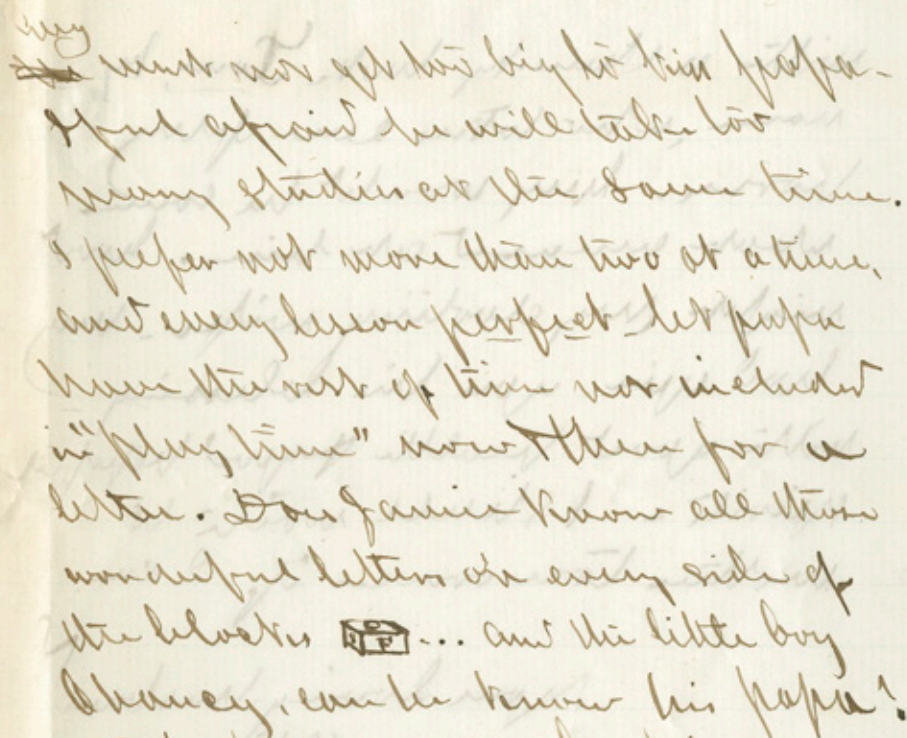 must not get too big to kiss papa -
I feel afraid he will take too
many studies at the same time.
I prefer not more than two at a time,
and every lesson perfect - let papa
have the rest of time not included
in "play time" now & then for a
letter. Does Jamie know all those
wonderful letters on every side of
the blocks ... and the little boy
Chancy, can he know his papa?